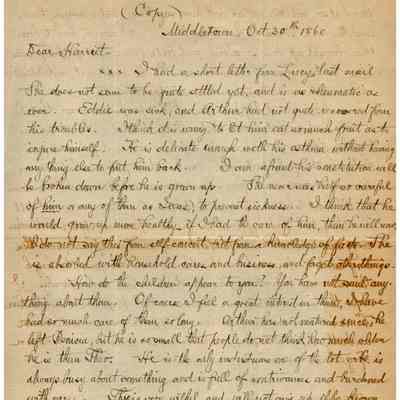 (Copy)
Middletown, Oct 30th 1860
Dear Harriet
xxx I had a short letter from Lucy, last mail
She does not seem to be quite settled yet, and is as rheumatic as
ever. Eddie was sick, and Arthur had not quite recovered from
his troubles. I think it is wrong to let him eat so much fruit as to
injure himself. He is delicate enough with his asthma without having
any thing else to put him back. I am afraid his constitution will
be broken down before he is grown up. She never was half so careful
of him or any of them as I was, to prevent sickness. I think that he
would grow up more healthy if I had the care of him, than he will now,
I do not say this from self conceit but from a knowledge of facts. She
is absorbed with household cares and business, and forgets other things
How do the children appear to you? You have not said any-
thing about them. Of course I feel a great interest in them, I have
had so much care of them so long. Arthur has not since he
left but he is so small that people do not think how much older
he is than Theo. He is the only industrious one of the lot and he is
always busy about something and is full of contrivances and
with